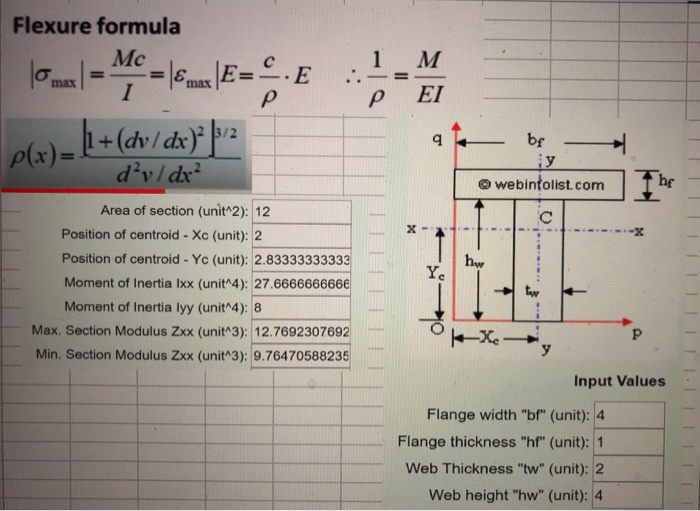 Flexure formula
|σmax| = Mc/I = |εmax|E = c/ρ · E ∴ 1/ρ = M/EI
ρ(x) = [1+(dv/dx)²]^3/2 / d²v/dx²
Area of section (unit^2): 12
Position of centroid - Xc (unit): 2
Position of centroid - Yc (unit): 2.83333333333
Moment of Inertia Ixx (unit^4): 27.6666666666
Moment of Inertia Iyy (unit^4): 8
Max. Section Modulus Zxx (unit^3): 12.7692307692
Min. Section Modulus Zxx (unit^3): 9.76470588235
q
bf
y
hf
© webinfolist.com
C
x
x
Yc
hw
tw
O
Xc
y
p
Input Values
Flange width "bf" (unit): 4
Flange thickness "hf" (unit): 1
Web Thickness "tw" (unit): 2
Web height "hw" (unit): 4